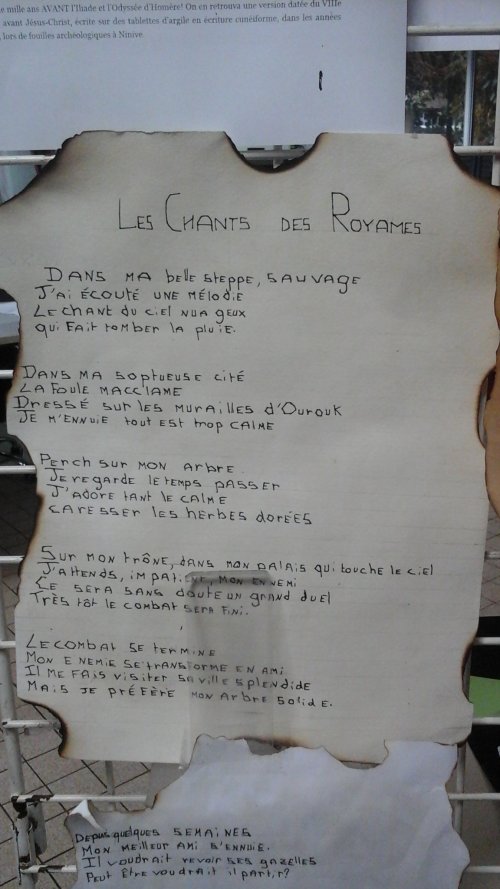 e mille ans AVANT l'Iliade et l'Odyssée d'Homère! On en retrouva une version datée du VIIIe
avant Jésus-Christ, écrite sur des tablettes d'argile en écriture cunéiforme, dans les années
lors de fouilles archéologiques à Ninive.
LES CHANTS DES ROYAMES
DANS MA belle steppe, SAUVAGE
J'AI ÉCOUTÉ UNE MÉLODIE
LE CHANT DU CIEL NUAGEUX
QUI FAIT TOMBER LA PLUIE.
DANS MA SOPTUEUSE CITÉ
LA FOULE M'ACCLAME
DRESSÉ SUR LES MURAILLES d'OUROUK
JE M'ENNUIE TOUT EST TROP CALME
PERCH SUR MON ARBRE
JE REGARDE LE TEMPS PASSER
J'ADORE TANT LE CALME
CARESSER LES HERBES DORÉES
SUR MON TRÔNE, DANS MON PALAIS QUI TOUCHE LE CIEL
J'ATTENDS, IMPATIENT, MON ENNEMI
CE SERA SANS DOUTE UN GRAND DUEL
TRÈS TÔT LE COMBAT SERA FINI.
LE COMBAT SE TERMINE
MON ENEMIE SE TRANSFORME EN AMI
IL ME FAIS VISITER SA VILLE SPLENDIDE
MAIS JE PRÉFÈRE MON ARBRE SOLIDE.
DEPUIS QUELQUES SEMAINES
MON MEILLEUR AMI S'ENNUIE.
IL VOUDRAIT REVOIR SES GAZELLES
PEUT ÊTRE VOUDRAIT IL PARTIR?